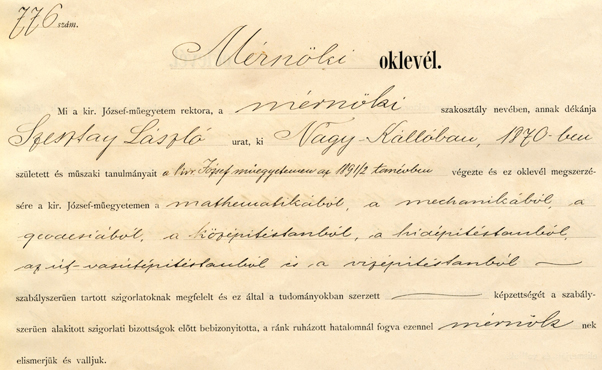 776 szám.
Mérnöki oklevél.
Mi a kir. József-műegyetem rektora, a mérnöki szakosztály nevében, annak dékánja
Szesztay László urat, ki Nagy-Kállóban, 1870-ben
született és műszaki tanulmányait a kir. József műegyetemen az 1891/2 tanévben végezte és ez oklevél megszerzé-
sére a kir. József-műegyetemen a mathematikából, a mechanikából, a
geodesiából, a középitéstanból, a hidépitéstanból,
az út-vasútépitéstanból és a vizépitéstanból —
szabályszerüen tartott szigorlatoknak megfelelt és ez által a tudományokban szerzett — képzettségét a szabály-
szerüen alakitott szigorlati bizottságok előtt bebizonyitotta, a ránk ruházott hatalomnál fogva ezennel mérnök nek
elismerjük és valljuk.